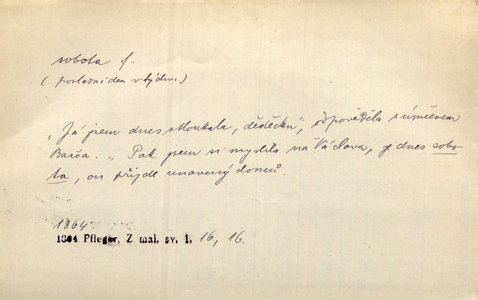 sobota f.
(poslední den v týdnu.)
„Já jsem dnes tloukala, dědečku", odpověděla s úsměvem
Barča. „Pak jsem si myslila na Václava, je dnes sobo-
ta, on přijde unavený domů.
1864
1864 Pfleger, Z mal. sv. 1, 16, 16.